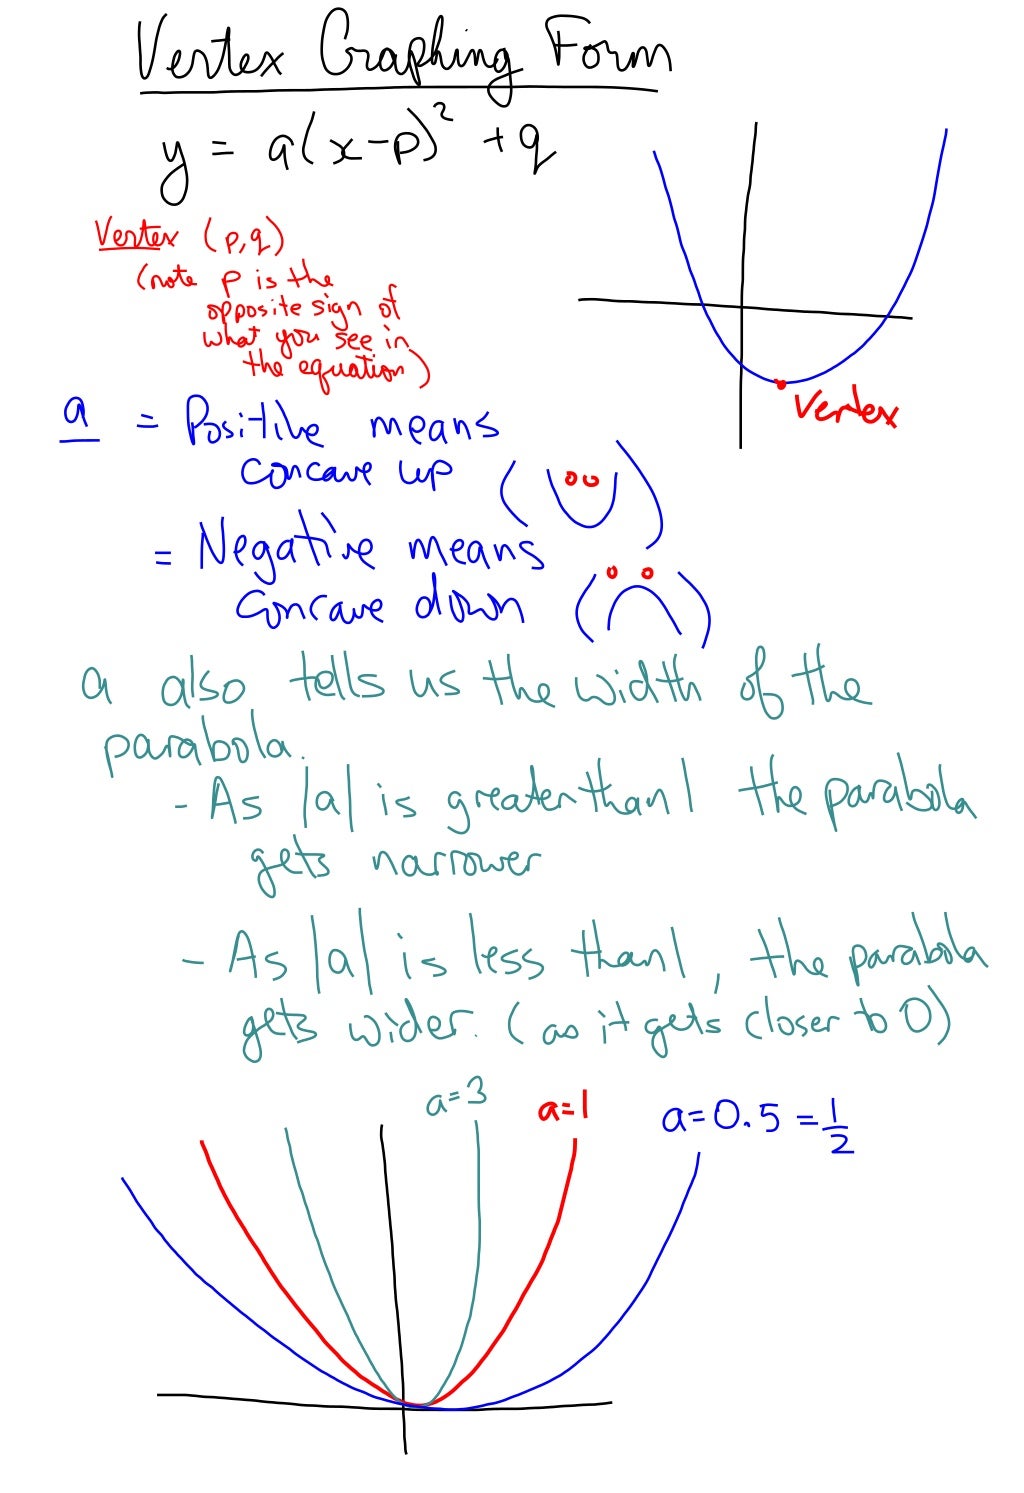 Vertex Graphing Form
y = a(x-p)² + q
Vertex (p,q)
(note p is the
opposite sign of
what you see in
the equation)
Vertex
a = Positive means
concave up
= Negative means
concave down
a also tells us the width of the
parabola.
- As |a| is greater than 1 the parabola
gets narrower
- As |a| is less than 1, the parabola
gets wider. (as it gets closer to 0)
a=3
a=1
a=0.5 = 1/2